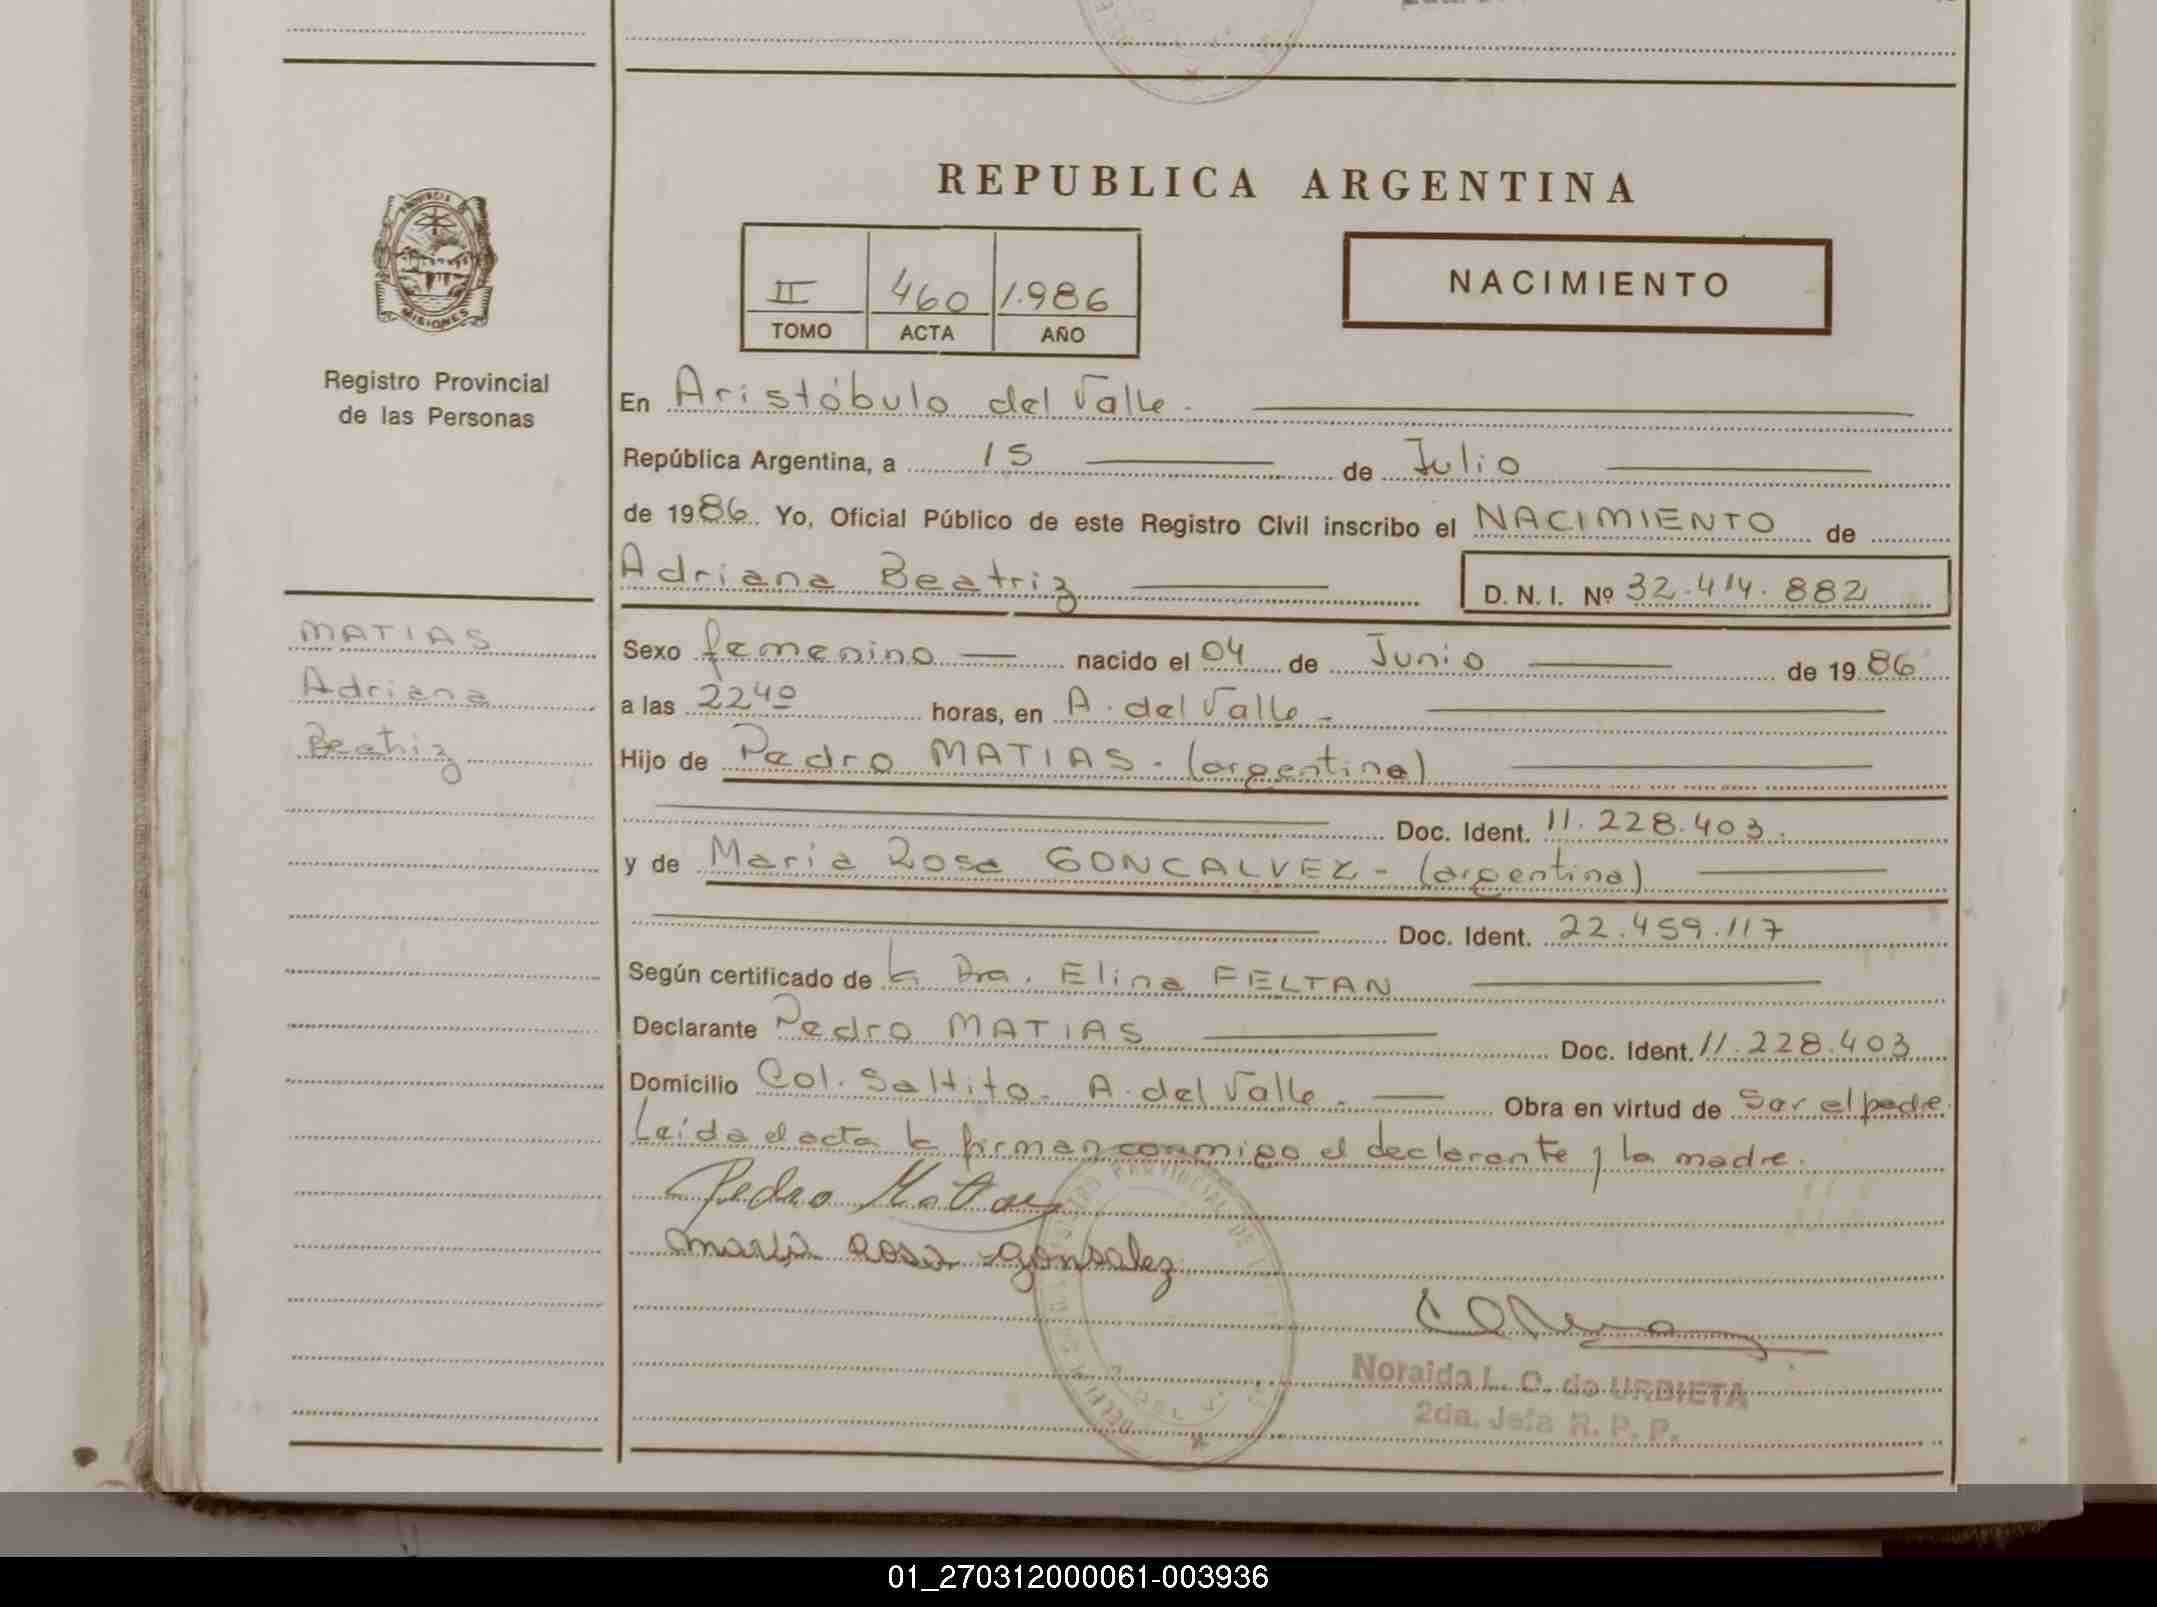 REPUBLICA ARGENTINA
PROVINCIA DE
MISIONES
II 460 1.986
TOMO ACTA AÑO
NACIMIENTO
Registro Provincial
de las Personas
En Aristóbulo del Valle.
República Argentina, a 15 de Julio
de 1986. Yo, Oficial Público de este Registro Civil inscribo el NACIMIENTO de
Adriana Beatriz D. N. I. Nº 32.414.882
MATIAS
Adriana
Beatriz
Sexo femenino nacido el 04 de Junio de 1986
a las 22 40 horas, en A. del Valle -
Hijo de Pedro MATIAS - (argentino)
Doc. Ident. 11.228.403.
y de María Rosa GONCALVEZ - (argentina)
Doc. Ident. 22.459.117
Según certificado de la Dra. Elina FELTAN
Declarante Pedro MATIAS Doc. Ident. 11.228.403
Domicilio Col. Saltito - A. del Valle - Obra en virtud de Ser el padre
Leída el acta la firman conmigo el declarante y la madre.
Pedro Matias
maria Rosa gonsalez
Noraida L. C. de URBIETA
2da. Jefa R. P. P.
01_270312000061-003936